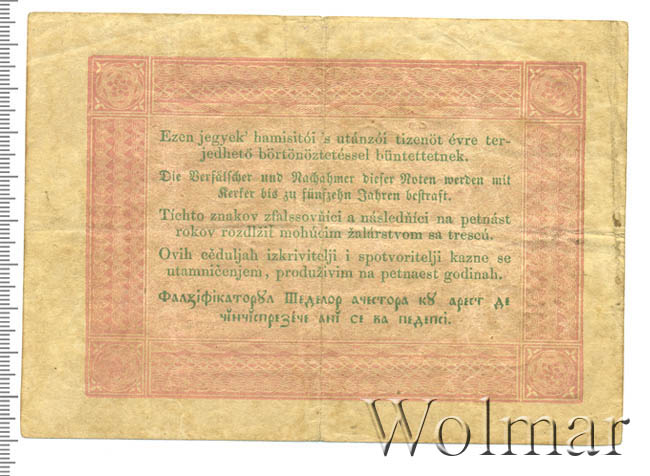 Ezen jegyek' hamisitói 's utánzói tizenöt évre ter-
jedhető börtönöztetéssel büntettetnek.
Die Verfälscher und Nachahmer dieser Noten werden mit
Kerker bis zu fünfzehn Jahren bestraft.
Tíchto znakov zfalssovňíci a násleďňíci na petnást
rokov rozdlžiť mohúcim žalárstvom sa trescú.
Ovih cěduljah izkrivitelji i spotvoritelji kazne se
utamničenjem, produživim na petnaest godinah.
ачестора кꙋ арест де
се ва педепсі.
Wolmar